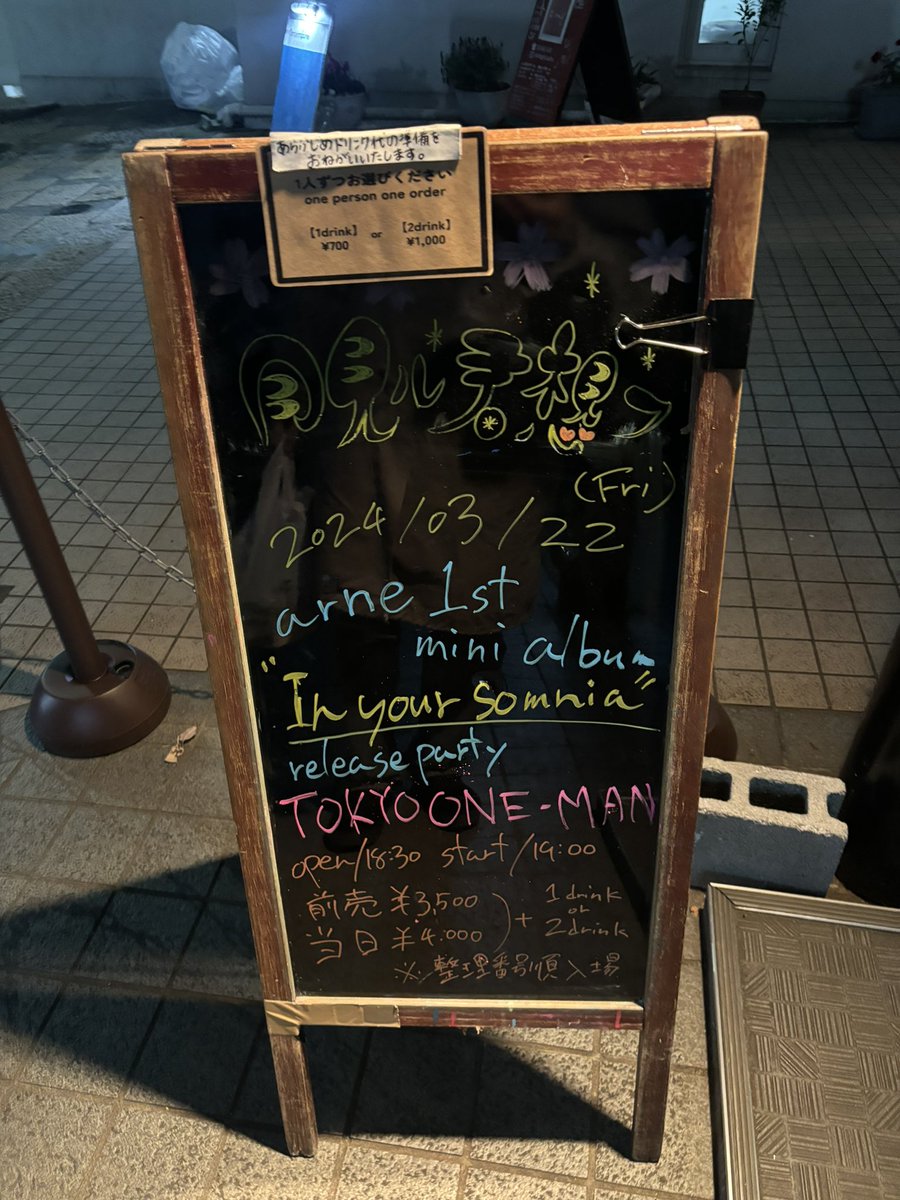 あらかじめドリンク代の準備を
おねがいいたします。
1人ずつお選びください
one person one order
【1drink】 or 【2drink】
¥700 ¥1,000
(Fri)
2024/03/22
arne 1st
mini album
"In your somnia"
release party
TOKYO ONE-MAN
open/18:30 start/19:00
前売 ¥3,500
当日 ¥4.000
+ 1drink
or
2drink
※整理番号順入場